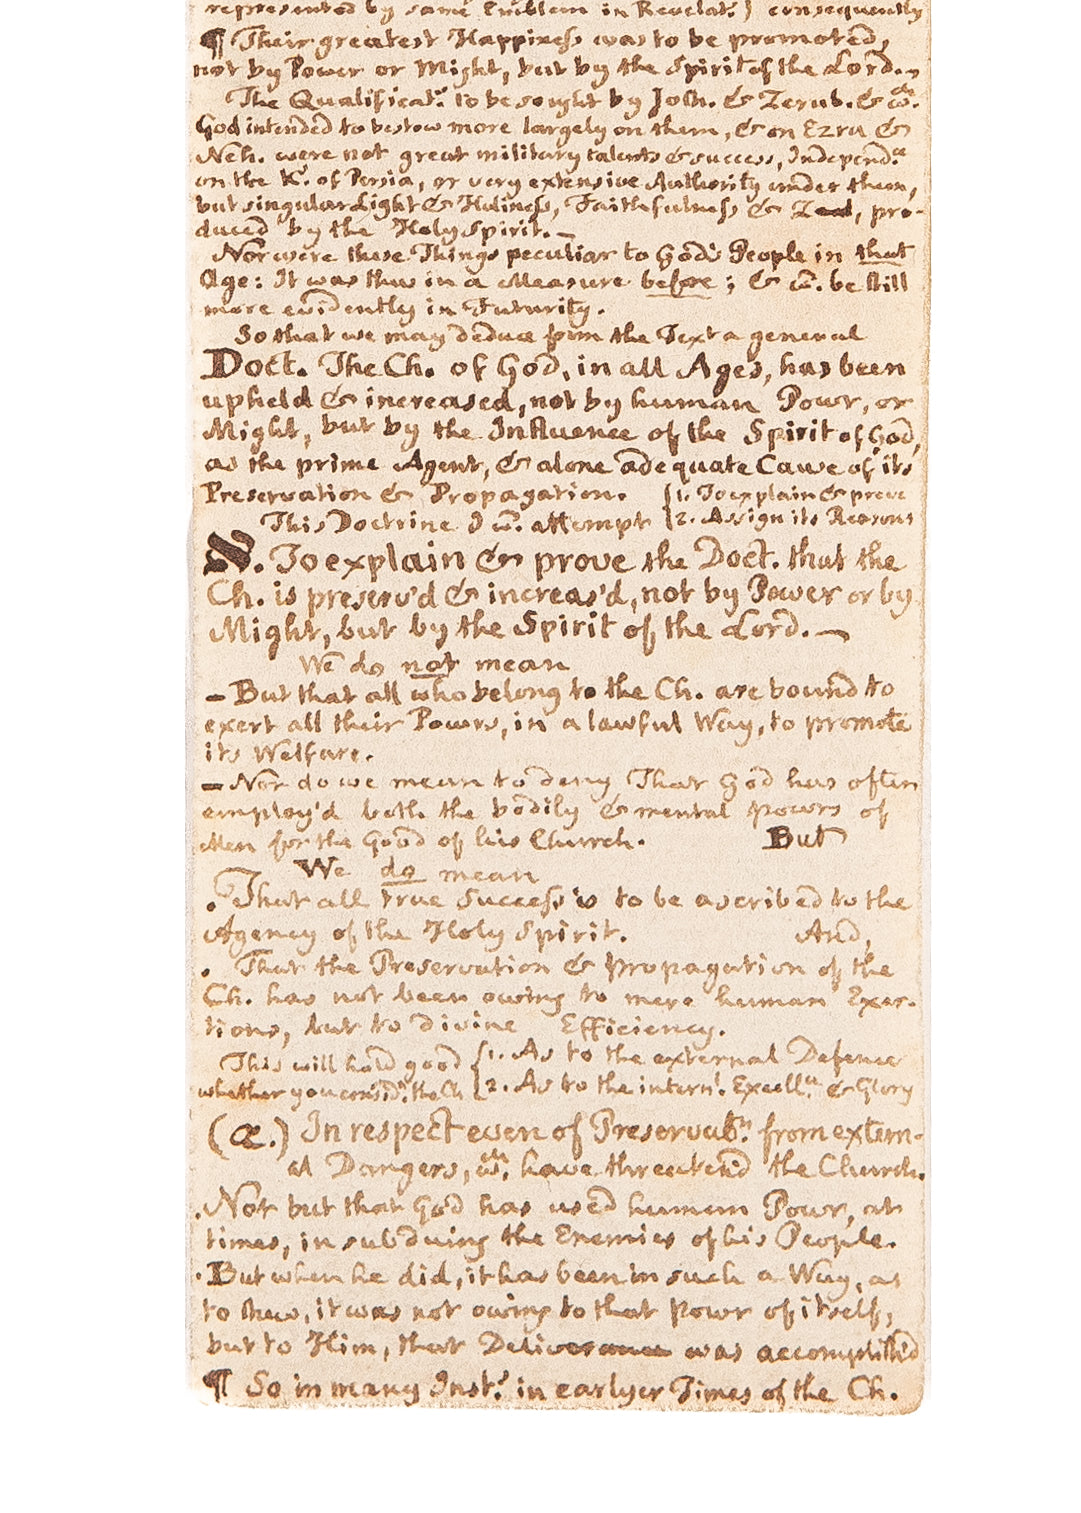 represented by same Emblem in Revelat.) consequently
¶ Their greatest Happiness was to be promoted,
not by Power or Might, but by the Spirit of the Lord.
The Qualificat.s to be sought by Josh. & Zerub. & wch.
God intended to bestow more largely on them, & on Ezra &
Neh. were not great military talents & success, Independ.ce
on the K.s of Persia, or very extensive Authority under them,
but singular Light & Holiness, Faithfulness & Zeal, pro-
duced by the Holy Spirit. —
Nor were these Things peculiar to God's People in that
Age: It was thus in a Measure before; & w. be still
more evidently in Futurity.
So that we may deduce from the Text a general
Doct. The Ch. of God, in all Ages, has been
upheld & increased, not by human Powr, or
Might, but by the Influence of the Spirit of God,
as the prime Agent, & alone adequate Cause of its
Preservation & Propagation. { 1. To explain & prove
This Doctrine I w. attempt { 2. Assign its Reasons
To explain & prove the Doct. that the
Ch. is preserv'd & increas'd, not by Power or by
Might, but by the Spirit of the Lord. —
We do not mean
— But that all who belong to the Ch. are bound to
exert all their Powrs, in a lawful Way, to promote
its Welfare.
— Nor do we mean to deny That God has often
employ'd both the bodily & mental powrs of
Men for the Good of his Church. But
We do mean
. That all true Success is to be ascribed to the
Agency of the Holy Spirit. And,
. That the Preservation & Propagation of the
Ch. has not been owing to mere human Exer-
tions, but to divine Efficiency.
This will hold good { 1. As to the external Defence
whether you consid.r the Ch { 2. As to the intern.l Excell.ce & Glory
(æ.) In respect even of Preservat.n from extern-
al Dangers, wch. have threatend the Church.
. Not but that God has used human Powr, at
times, in subduing the Enemies of his People.
. But when he did, it has been in such a Way, as
to shew, it was not owing to that Powr of itself,
but to Him, that Deliverance was accomplish'd
¶ So in many Inst.s in earlyer Times of the Ch.